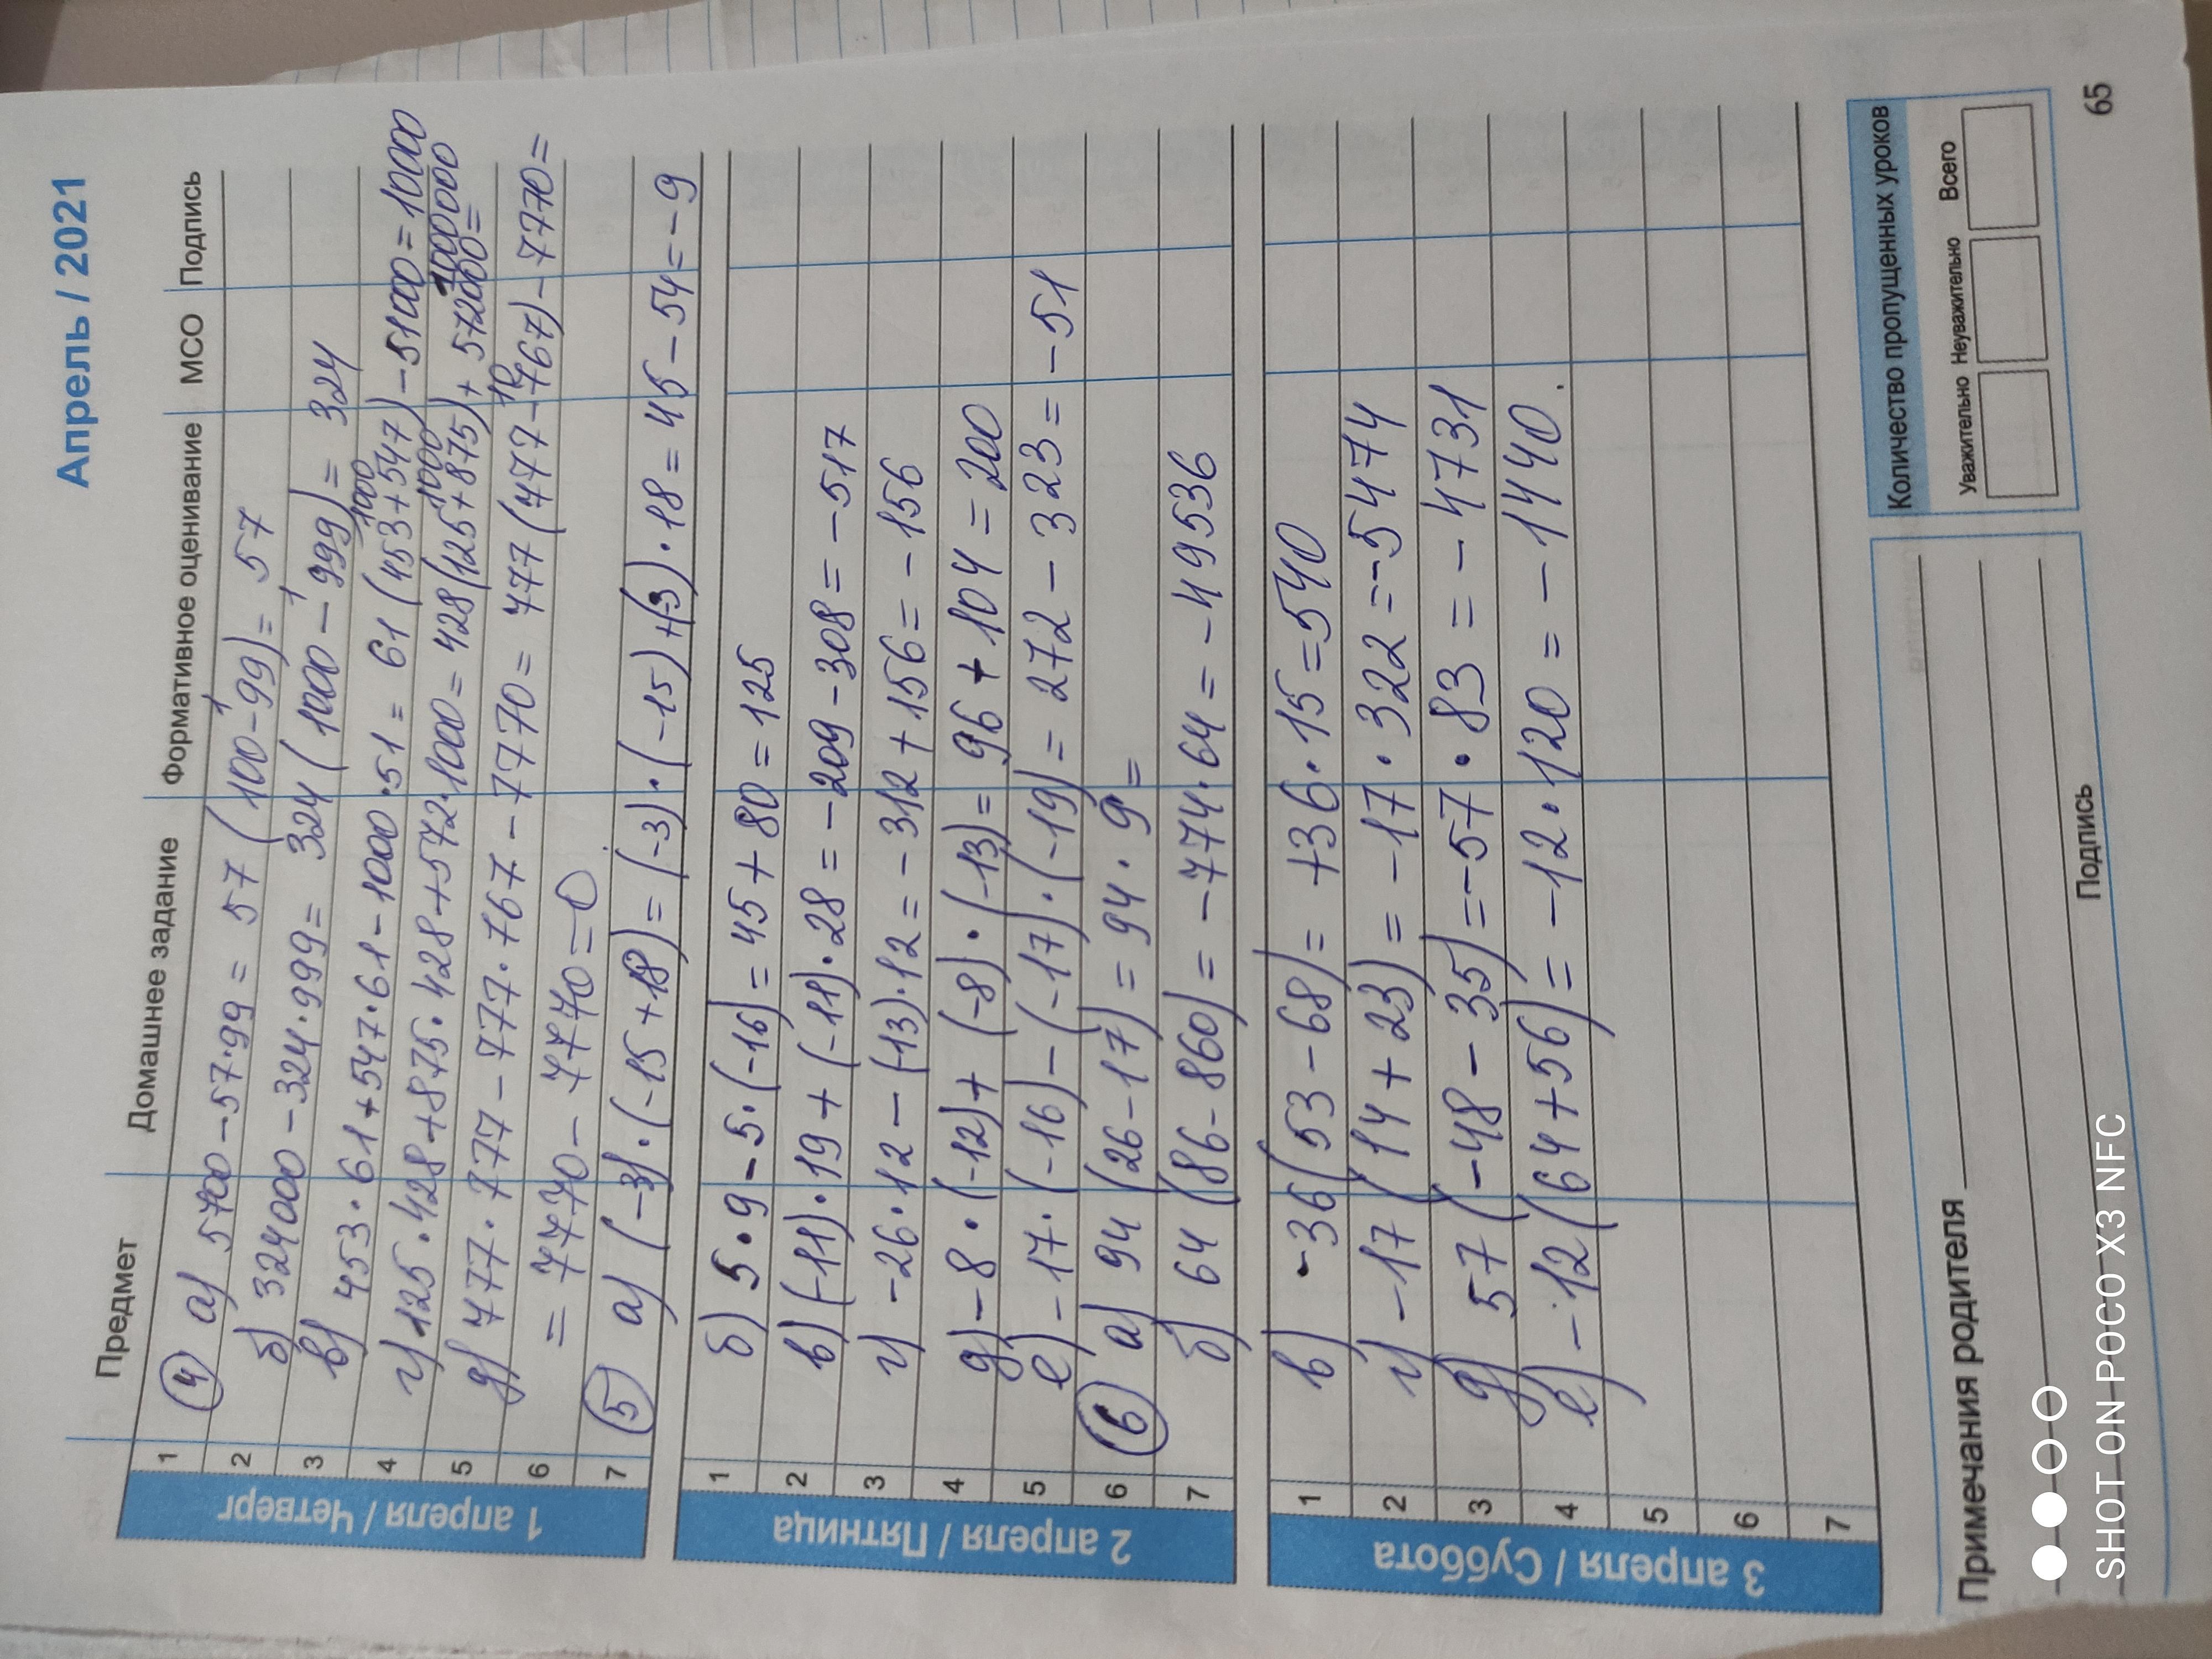 Апрель / 2021
Предмет Домашнее задание Формативное оценивание МСО Подпись
1 апреля / Четверг
1 (4) а) 5700 - 57·99 = 57 (100-99) = 57
1
2 б) 324000 - 324·999 = 324 (1000 - 999) = 324
1
3 в) 453·61+547·61-1000·51 = 61 (453+547) - 51000 = 1000
1000
10000
4 г) 125·428+875·428+572·1000 = 428(125+875)+ 572000=
1000
1000000
5 д) 777·777 - 777·767 - 7770 = 777 (777-767) - 7770=
10
6 = 7770 - 7770=0
7 (5) а) (-3)·(-15+18) = (-3)·(-15)+(-3)·18 = 45 - 54 = -9
2 апреля / Пятница
1 б) 5·9 - 5·(-16) = 45 + 80 = 125
2 в) (-11)·19 + (-11)·28 = -209 - 308 = -517
3 г) -26·12 - (13)·12 = -312 + 156 = -156
4 д) -8·(-12)+ (-8)·(-13) = 96 + 104 = 200
5 е) -17·(-16) - (-17)·(-19) = 272 - 323 = -51
6 (6) а) 94 (26-17) = 94·9 =
7 б) 64 (86-860) = -774·64 = -49536
3 апреля / Суббота
1 в) -36(53-68) = +36·15=540
2 г) -17 (14+23) = -17·322 =-5474
3 д) 57 (-48 - 35) =-57·83 = -4731
4 е) -12(64+56) = -12·120 = -1440.
5
6
7
Примечания родителя
Подпись
Количество пропущенных уроков
Уважительно Неуважительно Всего
65
SHOT ON POCO X3 NFC